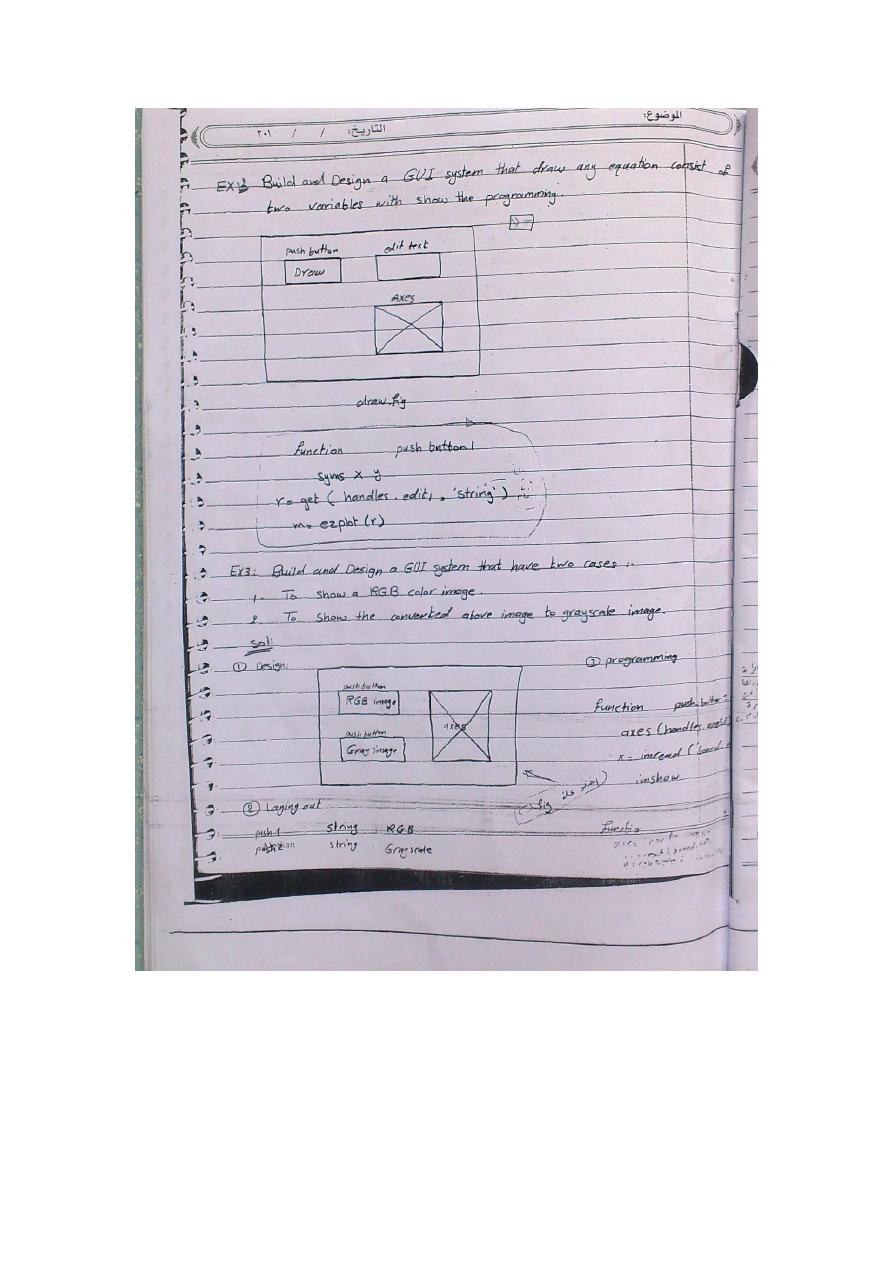 الموضوع:
التاريخ: / / ٢٠١
Build and Design a GUI system that draw any equation consist of
two variables with show the programming.
push button edit text
Draw
Axes
draw.fig
function push button1
syms x y
r= get ( handles . edit1 , 'string' )
m= ezplot (r)
EX3: Build and Design a GUI system that have two cases :-
1- To show a RGB color image.
2 To show the converted above image to grayscale image.
Sol:
① Design:
push button
RGB image
axes
push button
Gray image
③ programming
function push button
axes (handles.
x = imread ('
imshow
② Laying out
push 1 string : RGB
push 2 string : Grayscale